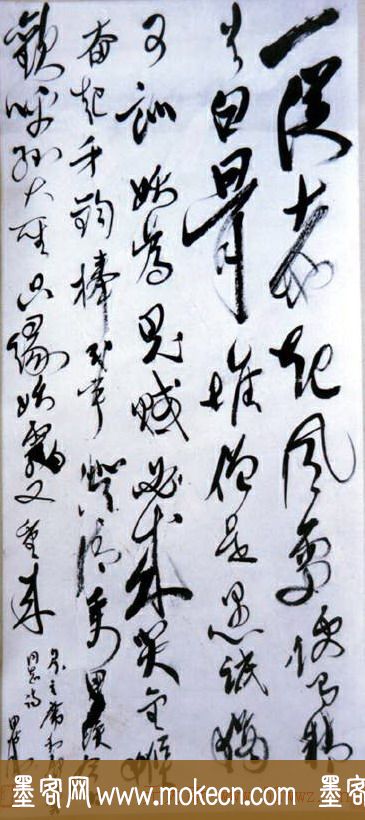 一从大地起风雷便有精
生白骨堆僧是愚氓犹
可训妖为鬼蜮必成灾金猴
奋起千钧棒玉宇澄清万里埃今日
欢呼孙大圣只缘妖雾又重来
墨客网 www.mokecn.com 墨客网